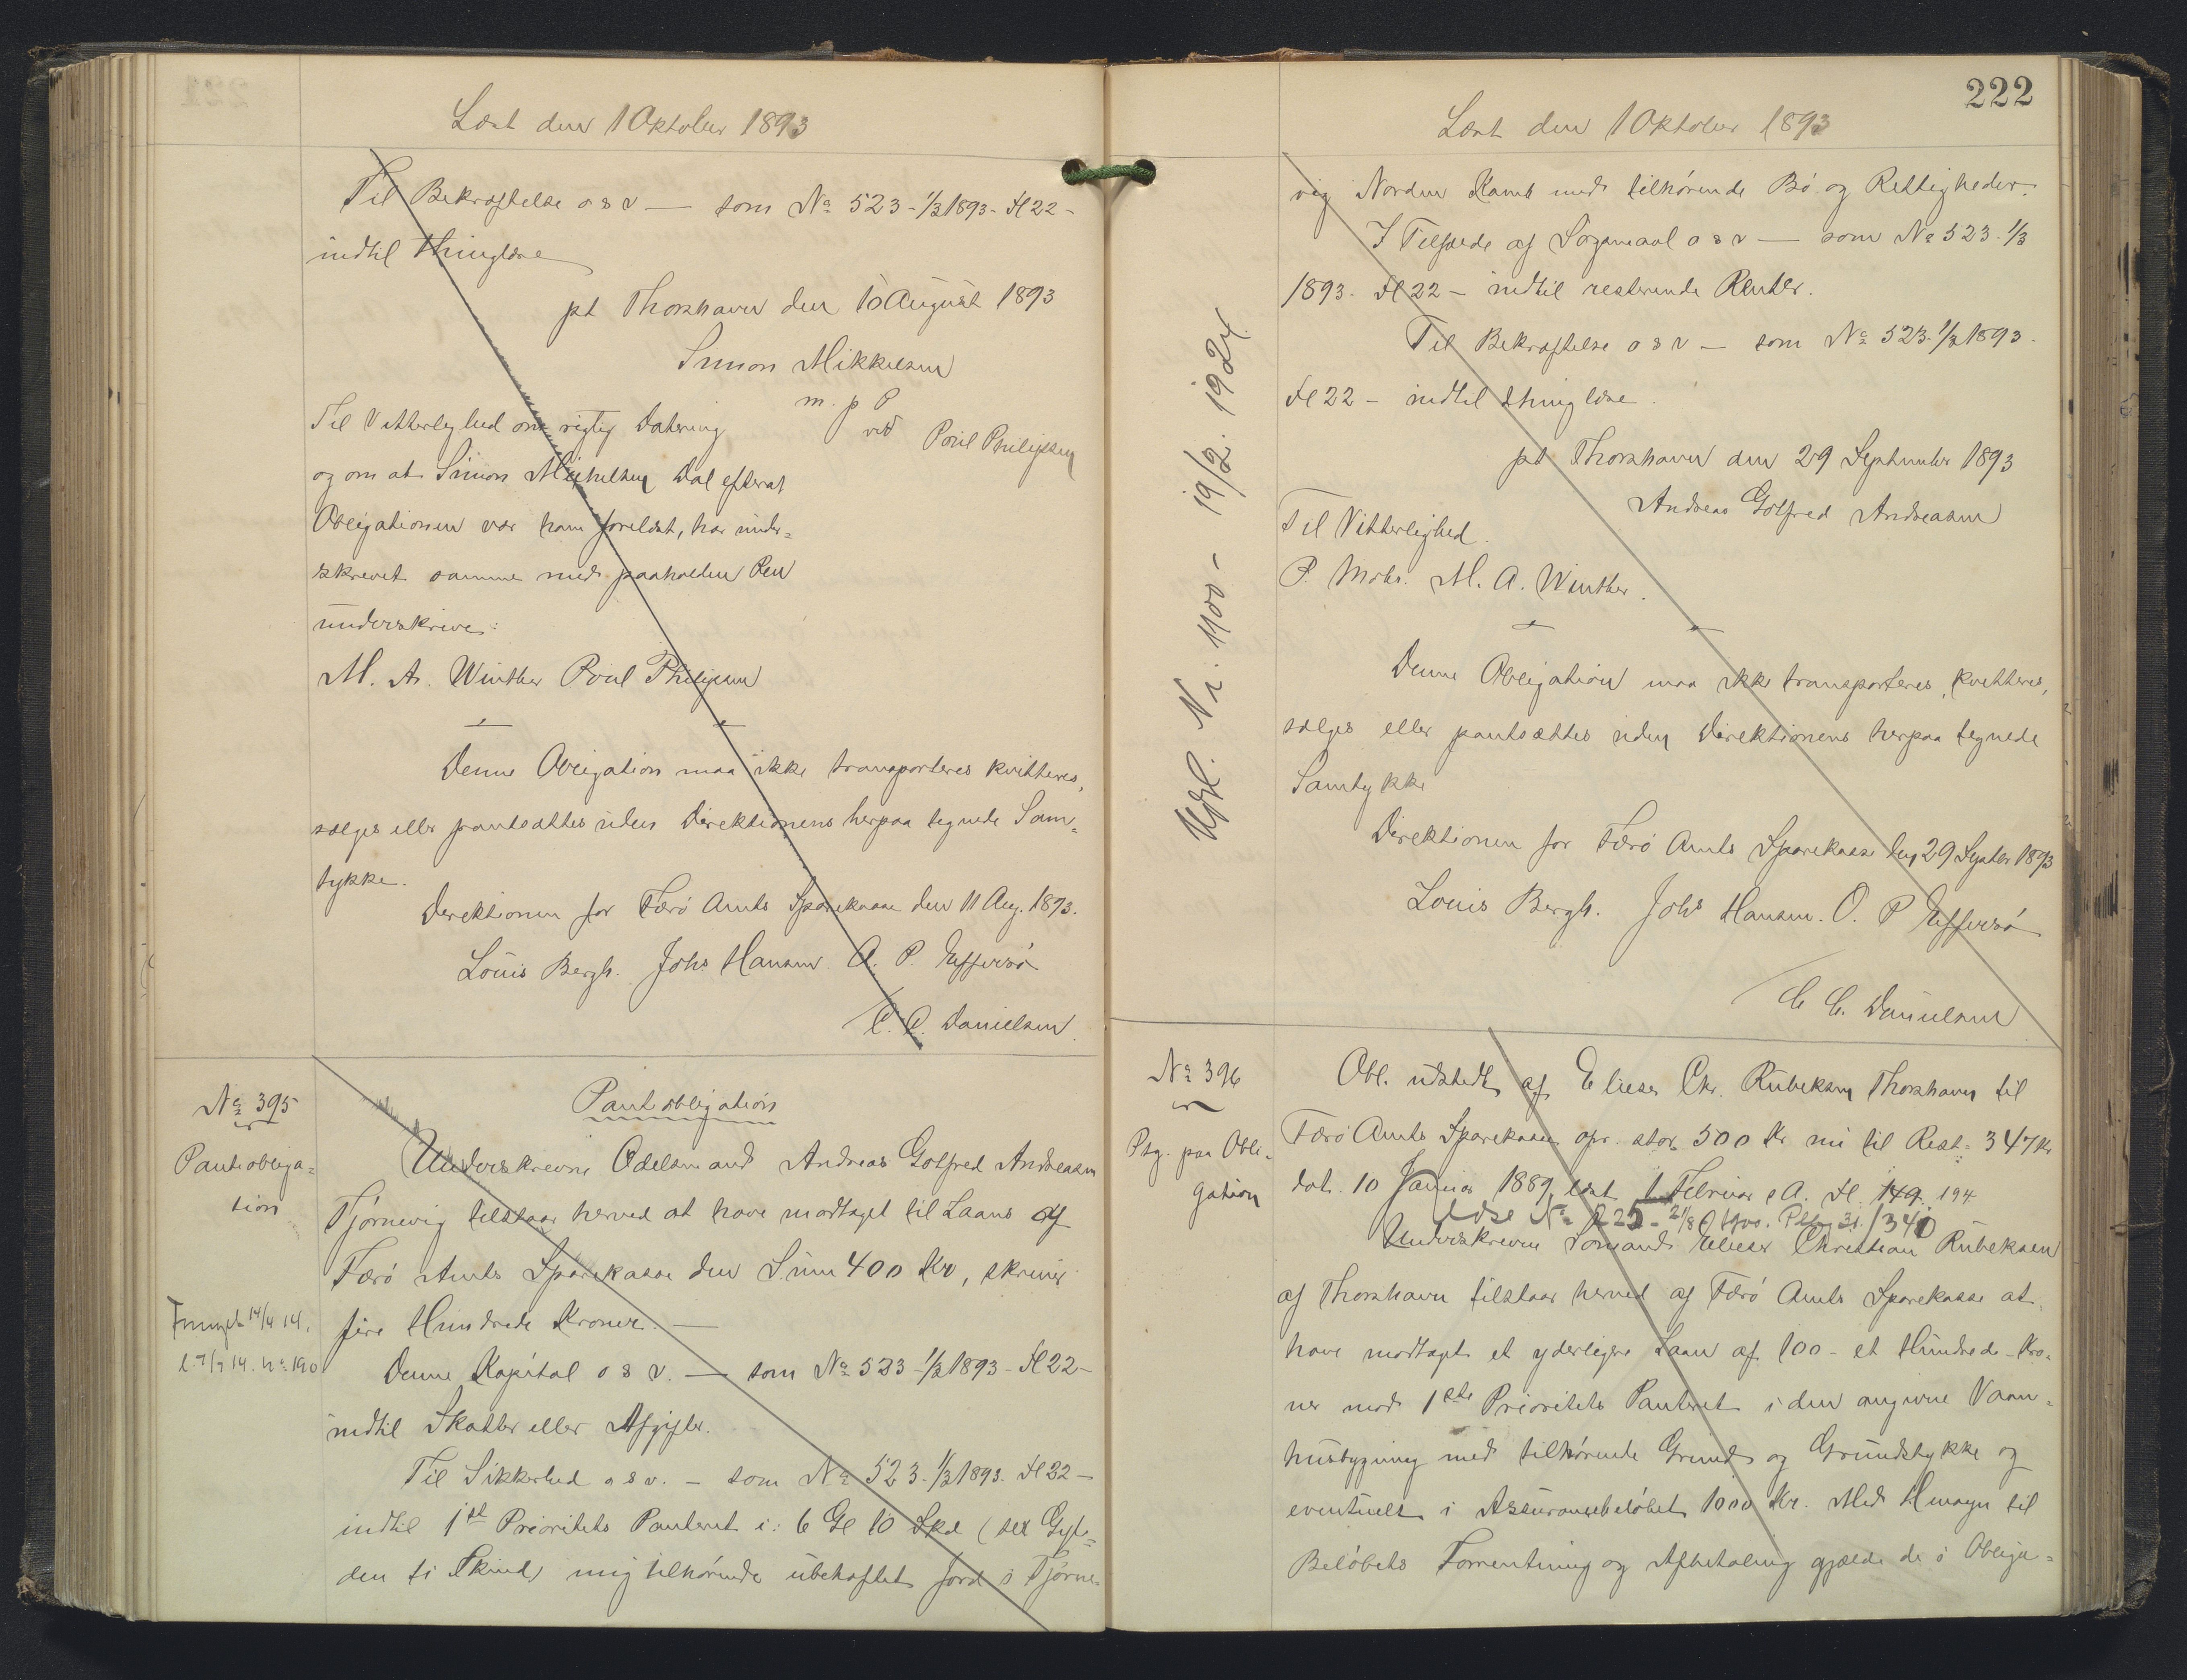 Læst den 1 Oktober 1893
Til Bekræftelse o s v — som No 523 - 1/3 1893 - Fl 22 -
indtil thinglæse
pt Thorshavn den 10 August 1893
Simon Mikkelsen
m. p P
ved Poul Philipsen
Til Vitterlighed om rigtig Datering
og om at Simon Michelsen Dal efterat
Obligationen var ham forelæst, har under=
skrevet samme med paaholden Pen
underskrive:
M. A. Winther Poul Philipsen
Denne Obligation maa ikke transporteres kvitteres,
sælges eller pantsættes uden Direktionens herpaa tegnede Sam=
tykke.
Direktionen for Færø Amts Sparekasse den 11 Aug. 1893.
Louis Bergh. Johs Hansen O. P. Effersø
/ C. C. Danielsen.
No 395
Pantobliga=
tion
14/4 14.
l. 7/7 14. No 190
Pantobligation
Underskrevne Odelsmand Andreas Gotfred Andreasen
Tjørnevig tilstaar herved at have modtaget til Laans af
Færø Amts Sparekasse den Sum 400 Kr, skriver
fire Hundrede Kroner. —
Denne Kapital o s v. — som No 523 - 1/3 1893 - Fl 22 -
indtil Skatter eller Afgifter.
Til Sikkerhed o s v. - som No 523 - 1/3 1893. Fl 22 -
indtil 1ste Prioritets Panteret i: 6 Gl 10 Skd (sex Gyl=
den ti Skind) mig tilhørende ubehæftet Jord i Tjørne=
222
Læst den 1 Oktober 1893
vig Norden Kamb med tilhørende Bø og Rettigheder.
I Tilfælde af Søgsmaal o s v — som No 523. 1/3
1893. Fl 22 - indtil resterende Renter.
Til Bekræftelse o s v — som No 523. 1/3 1893.
Fl 22 - indtil thinglæse.
pt Thorshavn den 29 September 1893
Andreas Gotfred Andreasen
Til Vitterlighed.
P. Mohr. M. A. Winther.
Denne Obligation maa ikke transporteres, kvitteres,
sælges eller pantsættes uden Direktionens herpaa tegnede
Samtykke
Direktionen for Færø Amts Sparekasse den 29 Septbr 1893
Louis Bergh. Johs Hansen. O. P Effersø
/ C C. Danielsen
N i. 1100 - 19/2. 1924.
No 396
Ptg. paa Obli-
gation
Obl. udstedt af Elieser Chr. Rubeksen Thorshavn til
Færø Amts Sparekasse opr. stor 500 Kr nu til Rest= 347 Kr
dat. 10 Januar 1889, læst 1 Februar s A. Fl. 149. 194
Underskrevne Sømand Elieser Christian Rubeksen
af Thorshavn tilstaar herved af Færø Amts Sparekasse at
have modtaget et yderligere Laan af 100 - et Hundrede - Kro=
ner mod 1ste Prioritets Panteret i den angivne Vaan=
husbygning med tilhørende Grund og Grundstykke og
eventuelt i Assurancebeløbet 1000 Kr. Med Hensyn til
Beløbets Forrentning og Afbetaling gjælde de i Obliga=